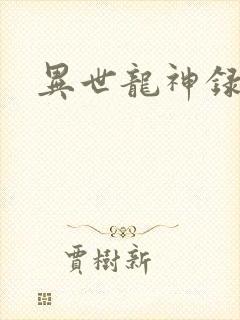 異世龍神録
賈樹新